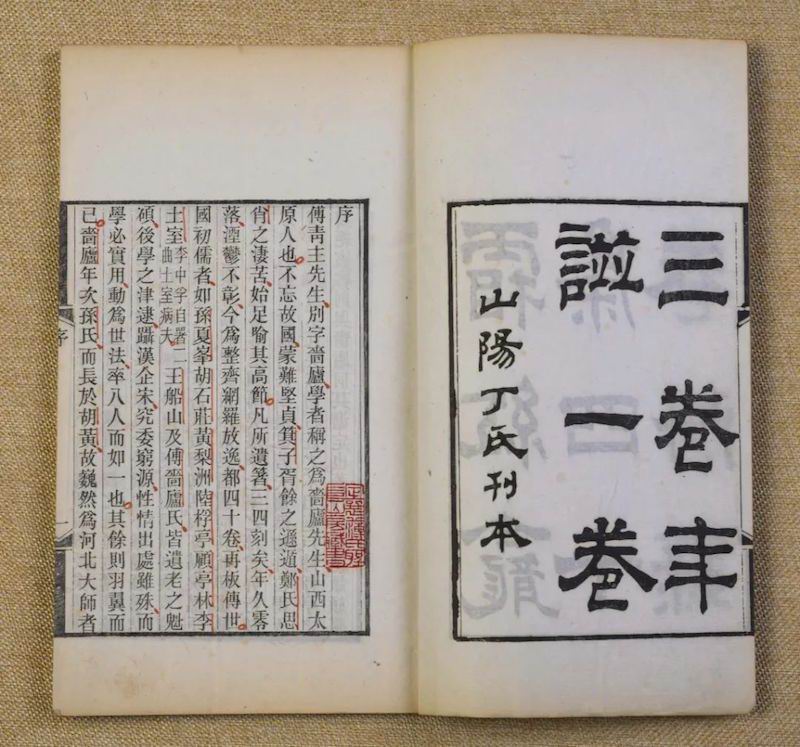 三卷年
譜一卷
山陽丁氏刊本
序
傅青主先生別字嗇廬學者稱之為嗇廬先生山西太
原人也不忘故國蒙難堅貞箕子胥餘之遯遁鄭氏思
肖之淒苦始足喻其高節凡所遺箸三四刻矣年久零
落湮鬱不彰今為整齊網羅放逸都四十卷再板傳世
國初儒者如孫夏峯胡石莊黃梨洲陸桴亭顧亭林李
土室李中孚自署二曲土室病夫王船山及傅嗇廬氏皆遺老之魁
碩後學之津逮躡漢企宋究委窮源性情出處雖殊而
學必實用動為世法率八人而如一也其餘則羽翼而
已嗇廬年次孫氏而長於胡黃故巍然為河北大師者
序
一